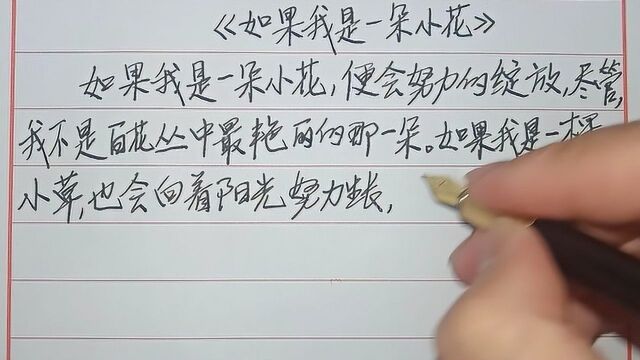 《如果我是一朵小花》
如果我是一朵小花，便会努力的绽放，尽管，
我不是百花丛中最艳丽的那一朵。如果我是一棵
小草，也会向着阳光努力生长，